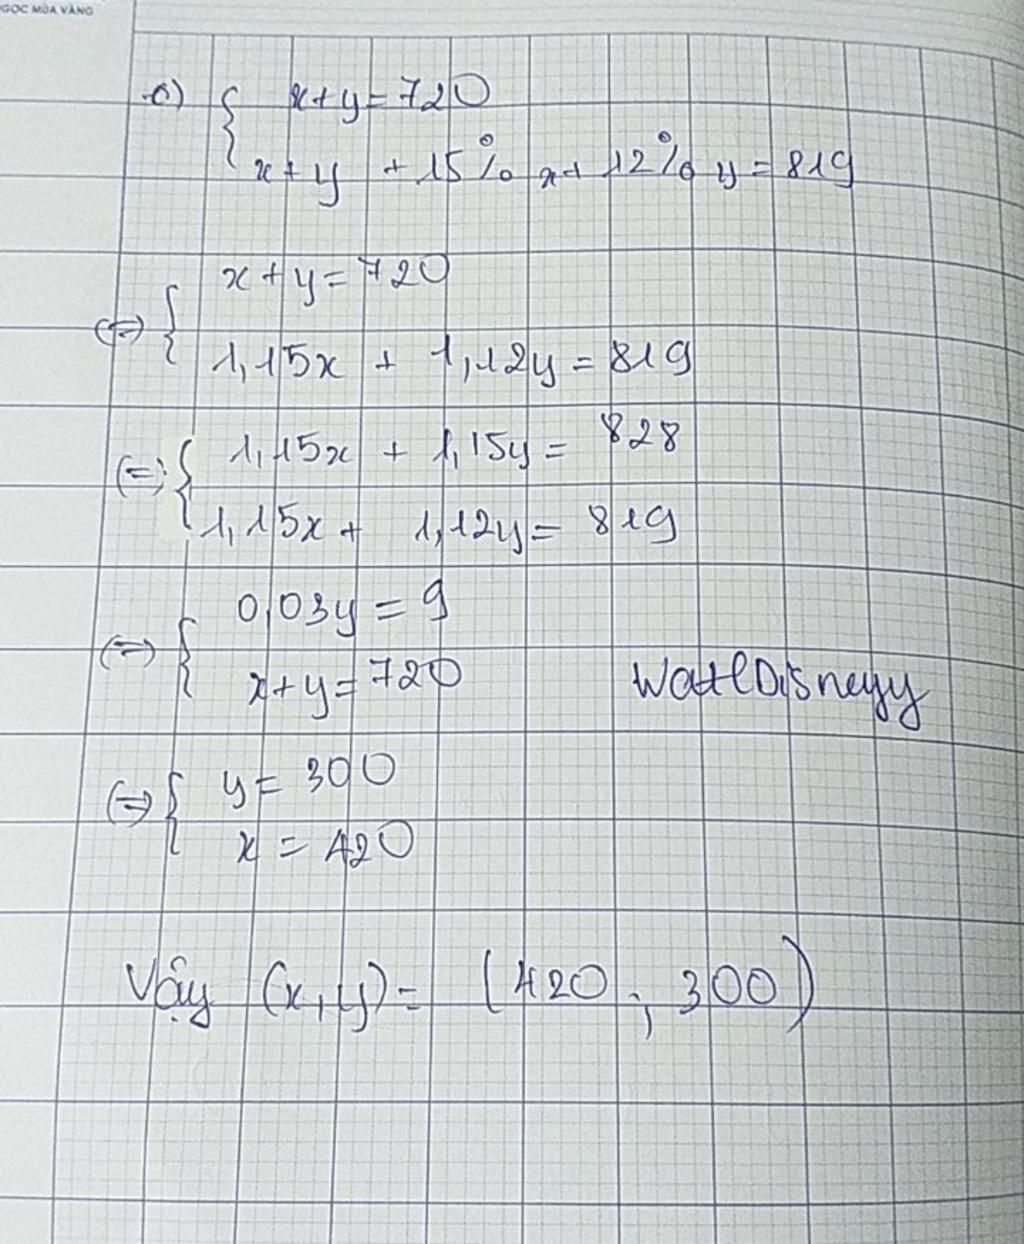 GỌC MÙA VÀNG
c) { x+y=720
x+y +15% x+ 12% y = 819
(=) { x+y=720
1,15x + 1,12y = 819
(=) { 1,15x + 1,15y = 828
1,15x + 1,12y = 819
(=) { 0,03y = 9
x+y=720
WatlDisneyy
(=) { y = 300
x = 420
Vậy (x,y) = (420 ; 300)